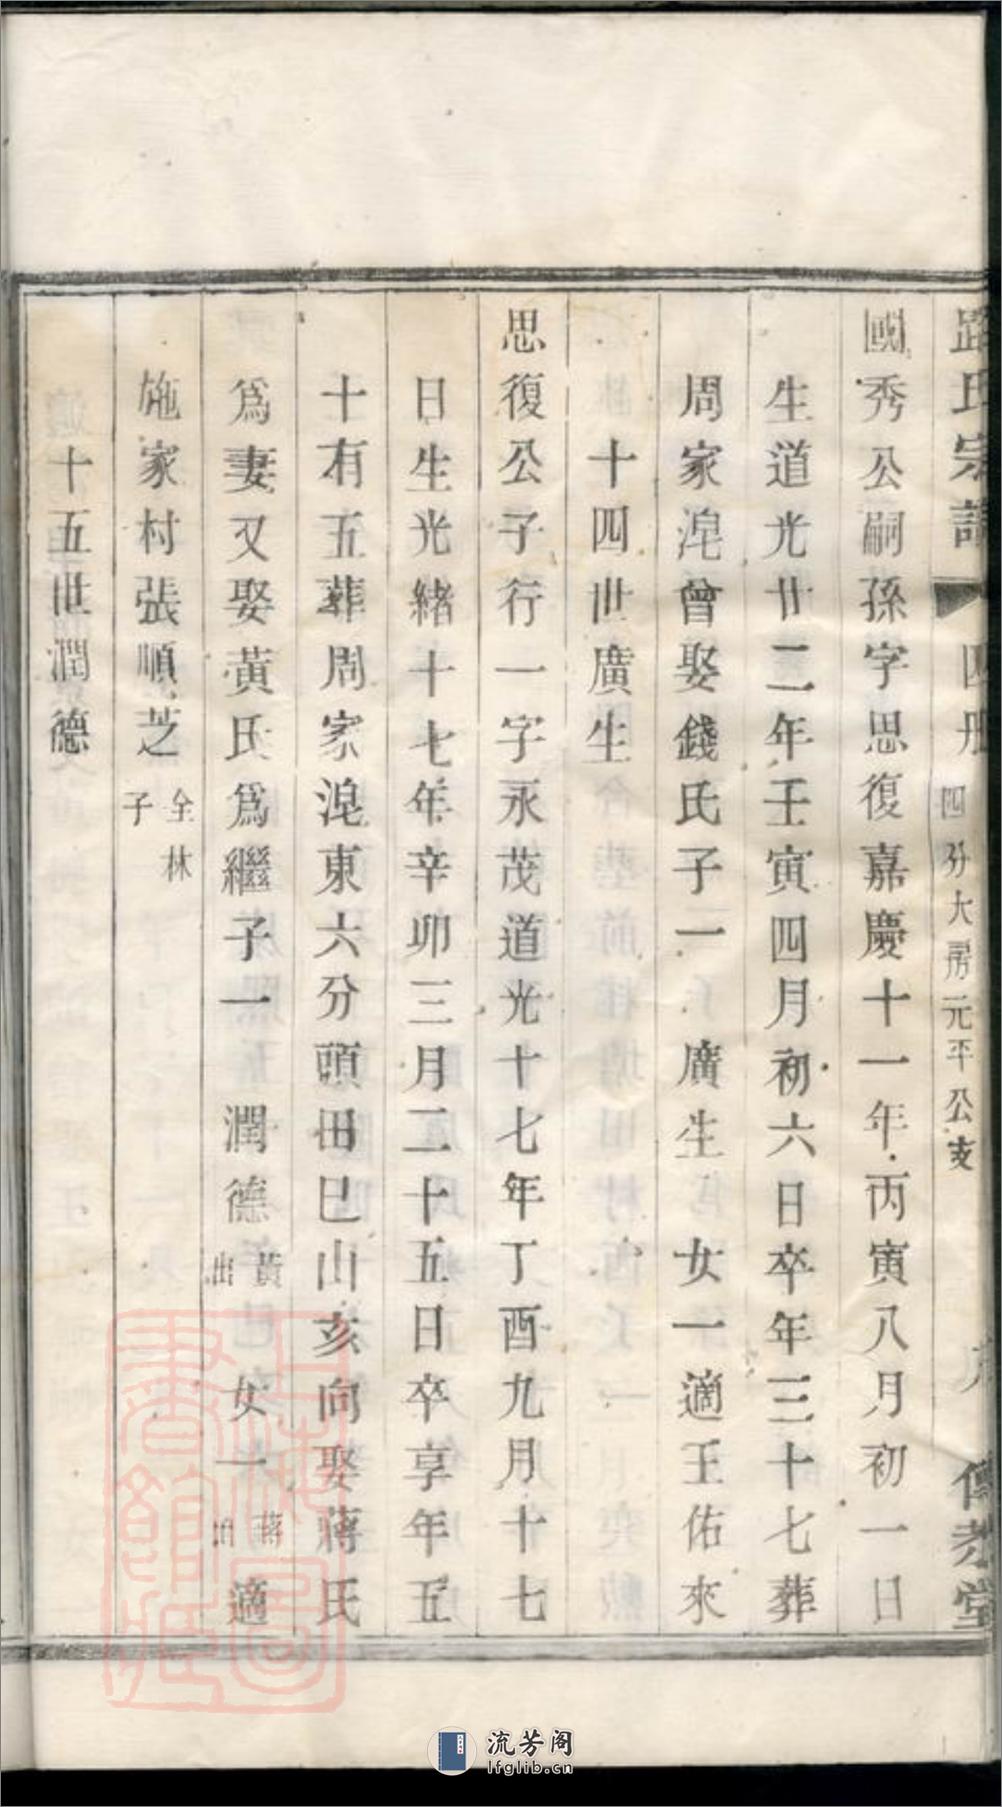 路氏宗譜 四册 四分大房元平公支 傳孝堂
國秀公嗣孫字思復嘉慶十一年丙寅八月初一日
生道光廿二年壬寅四月初六日卒年三十七葬
周家漄曾娶錢氏子一 廣生 女一適王佑來
十四世廣生
思復公子行一字永茂道光十七年丁酉九月十七
日生光緒十七年辛卯三月二十五日卒享年五
十有五葬周家漄東六分頭田巳山亥向娶蔣氏
爲妻又娶黃氏爲繼子一 潤德 黃出 女一 蔣出 適
施家村張順芝 全林子
十五世潤德
上海圖書館藏
流芳阁
lfglib.cn